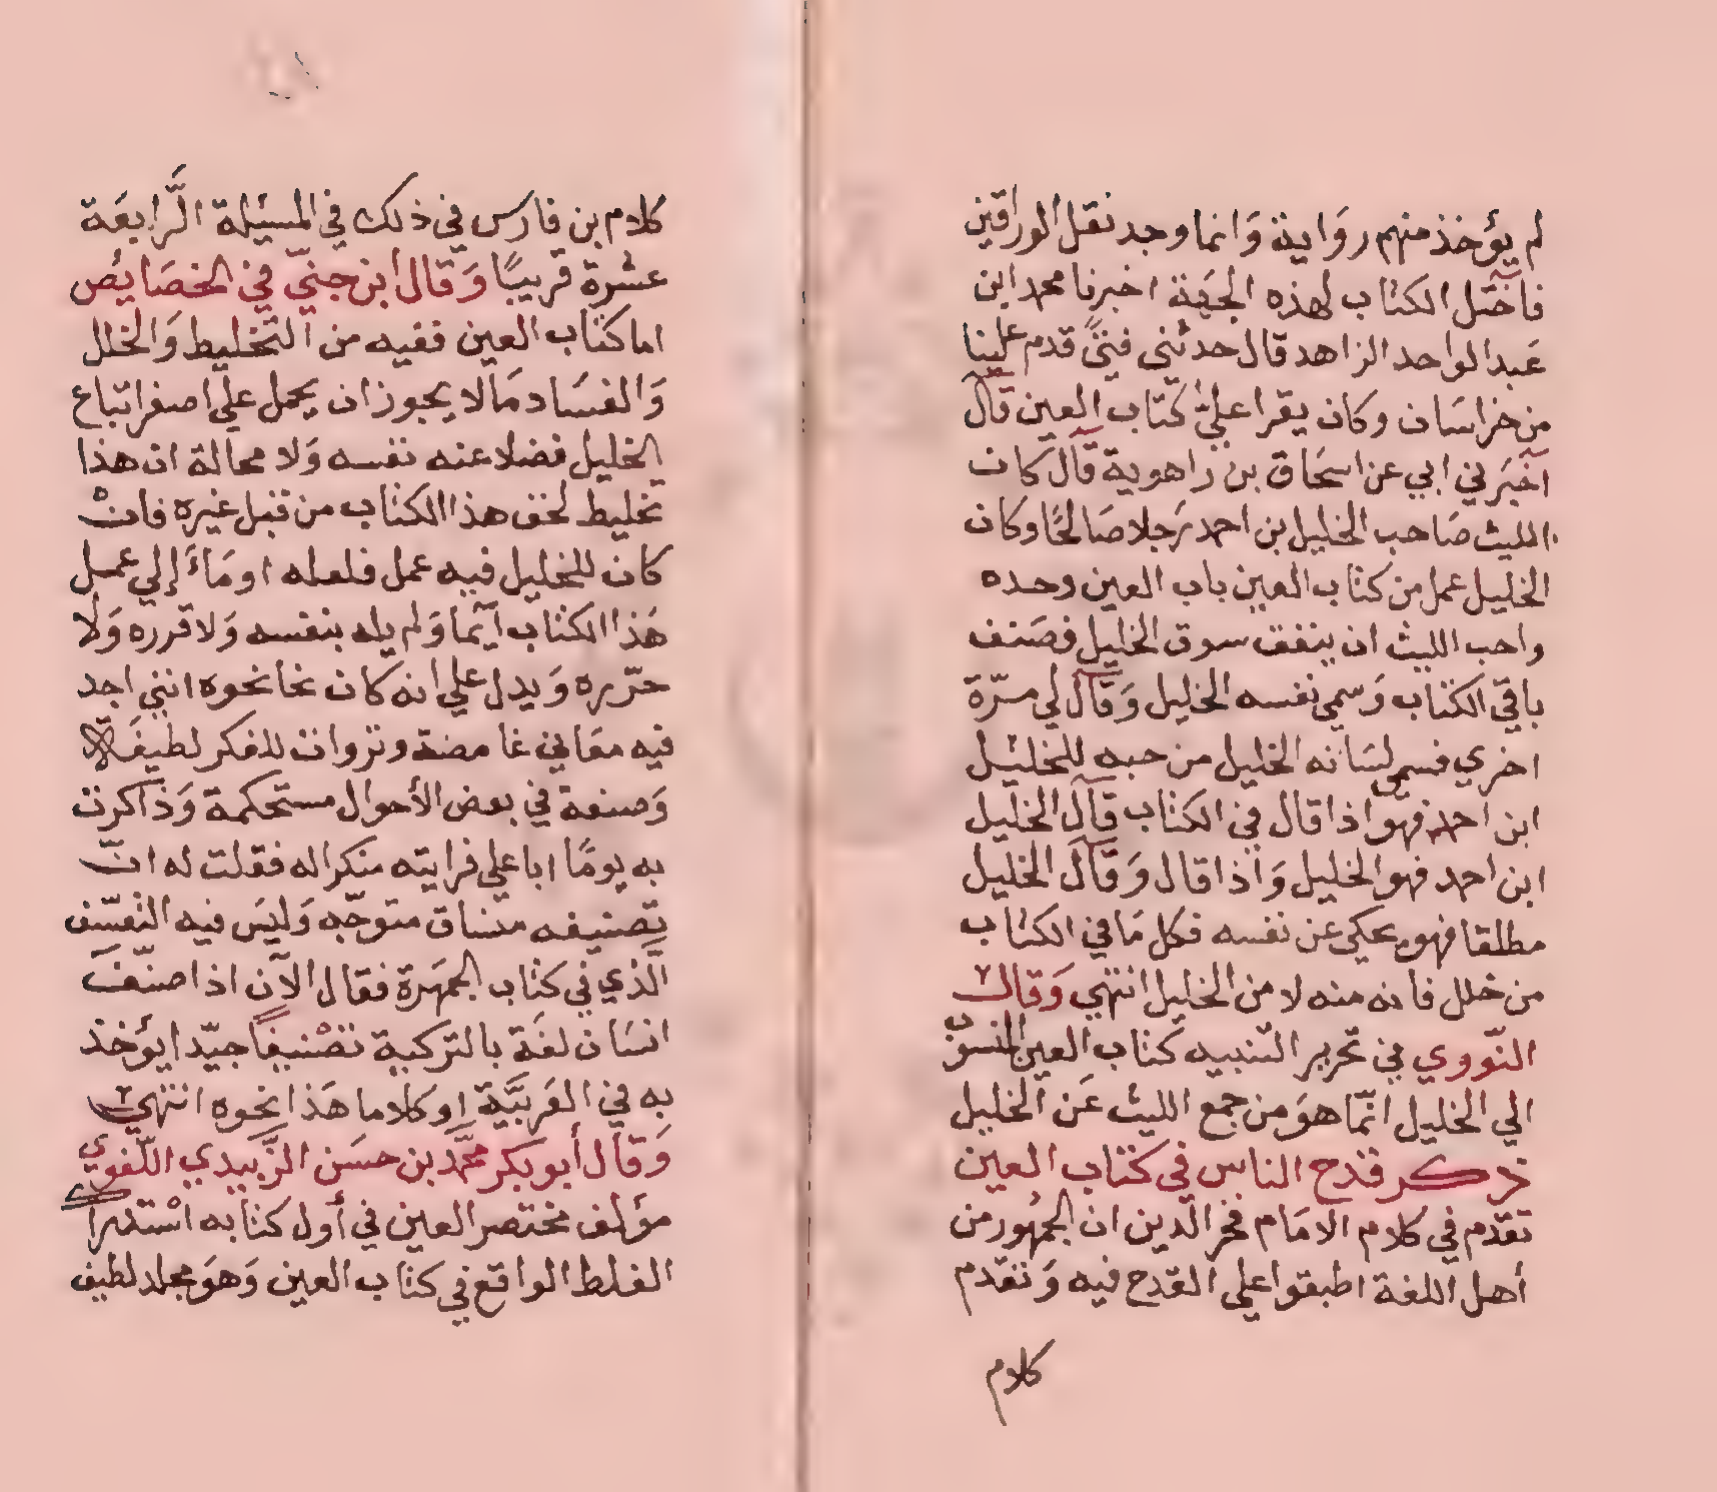 لم يؤخذ منهم رواية وانما وجد نقل الوراقين
فاختل الكتاب لهذه الجهة اخبرنا محمد ابن
عبد الواحد الزاهد قال حدثني فتىً قدم علينا
من خراسان وكان يقرا عليّ كتاب العين قال
اخبرني ابي عن اسحاق بن راهوية قال كان
الليث صاحب الخليل بن احمد رجلا صالحًا وكان
الخليل عمل من كتاب العين باب العين وحده
واحب الليث ان ينفق سوق الخليل فصنف
باقي الكتاب وسمي نفسه الخليل وقال لي مرّة
اخري فسمي لسانه الخليل من حبه للخليل
ابن احمد فهو اذا قال في الكتاب قال الخليل
ابن احمد فهو الخليل واذا قال وقال الخليل
مطلقا فهو يحكي عن نفسه فكل ما في الكتاب
من خلل فانه منه لا من الخليل انتهي وقال
النّووي في تحرير التنبيه كتاب العين المنسوب
الي الخليل انّما هو من جمع الليث عن الخليل
ذكر قدح الناس في كتاب العين
تقدّم في كلام الامام فخر الدين ان الجمهور من
أهل اللغة اطبقوا علي القدح فيه وتقدّم
كلام
كلام بن فارس في ذلك في المسئلة الرَّابعَة
عشرة قريبًا وَقال ابن جنيّ في الخصايص
اما كتاب العين ففيه من التخليط وَالخلل
وَالفسَاد مَا لا يجوز ان يحمل علي اصغر اتباع
الخليل فضلا عنه نفسه وَلا محالة ان هذا
تخليط لحق هذا الكتاب من قبل غيره فانْ
كان للخليل فيه عمل فلعله اومَأَ إلي عمل
هَذا الكتاب آيما وَلم يله بنفسه وَلا قرره وَلا
حرّره وَيدل علي انه كان نحا نحوه انني اجد
فيه معَاني غامضة ونزوات للفكر لطيفَة
وَصنعة في بعض الأحوال مستحكمة وَذاكرت
به يومًا ابا علي فرايته منكرا له فقلت له انّ
تصنيفه منساق متوجّه وَليسَ فيه التعسّف
الّذي في كتاب الجمهَرة فقال الآن اذا صنّفَ
انسَان لغَة بالتركية تصْنيفًا جيّدا يؤخذ
به في العَربيَّة او كلاما هَذا نحوه انتهي
وَقال أبو بكر محَّمد بن حسَن الزّبيدي اللّغوي
مؤلف مختصر العين في أول كتابه اسْتدراك
الغلط الواقع في كتاب العين وَهوَ مجلد لطيف